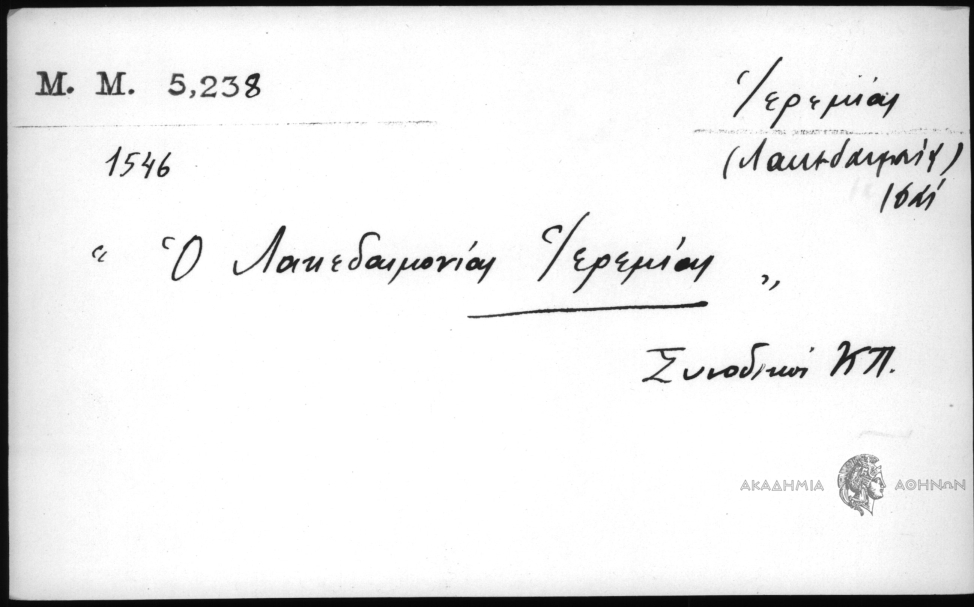 Μ. Μ. 5,238
Ἱερεμίας
1546
(Λακεδαιμονίας)
" Ὁ Λακεδαιμονίας Ἱερεμίας "
Συνοδικοί ΚΠ.
ΑΚΑΔΗΜΙΑ ΑΘΗΝΩΝ